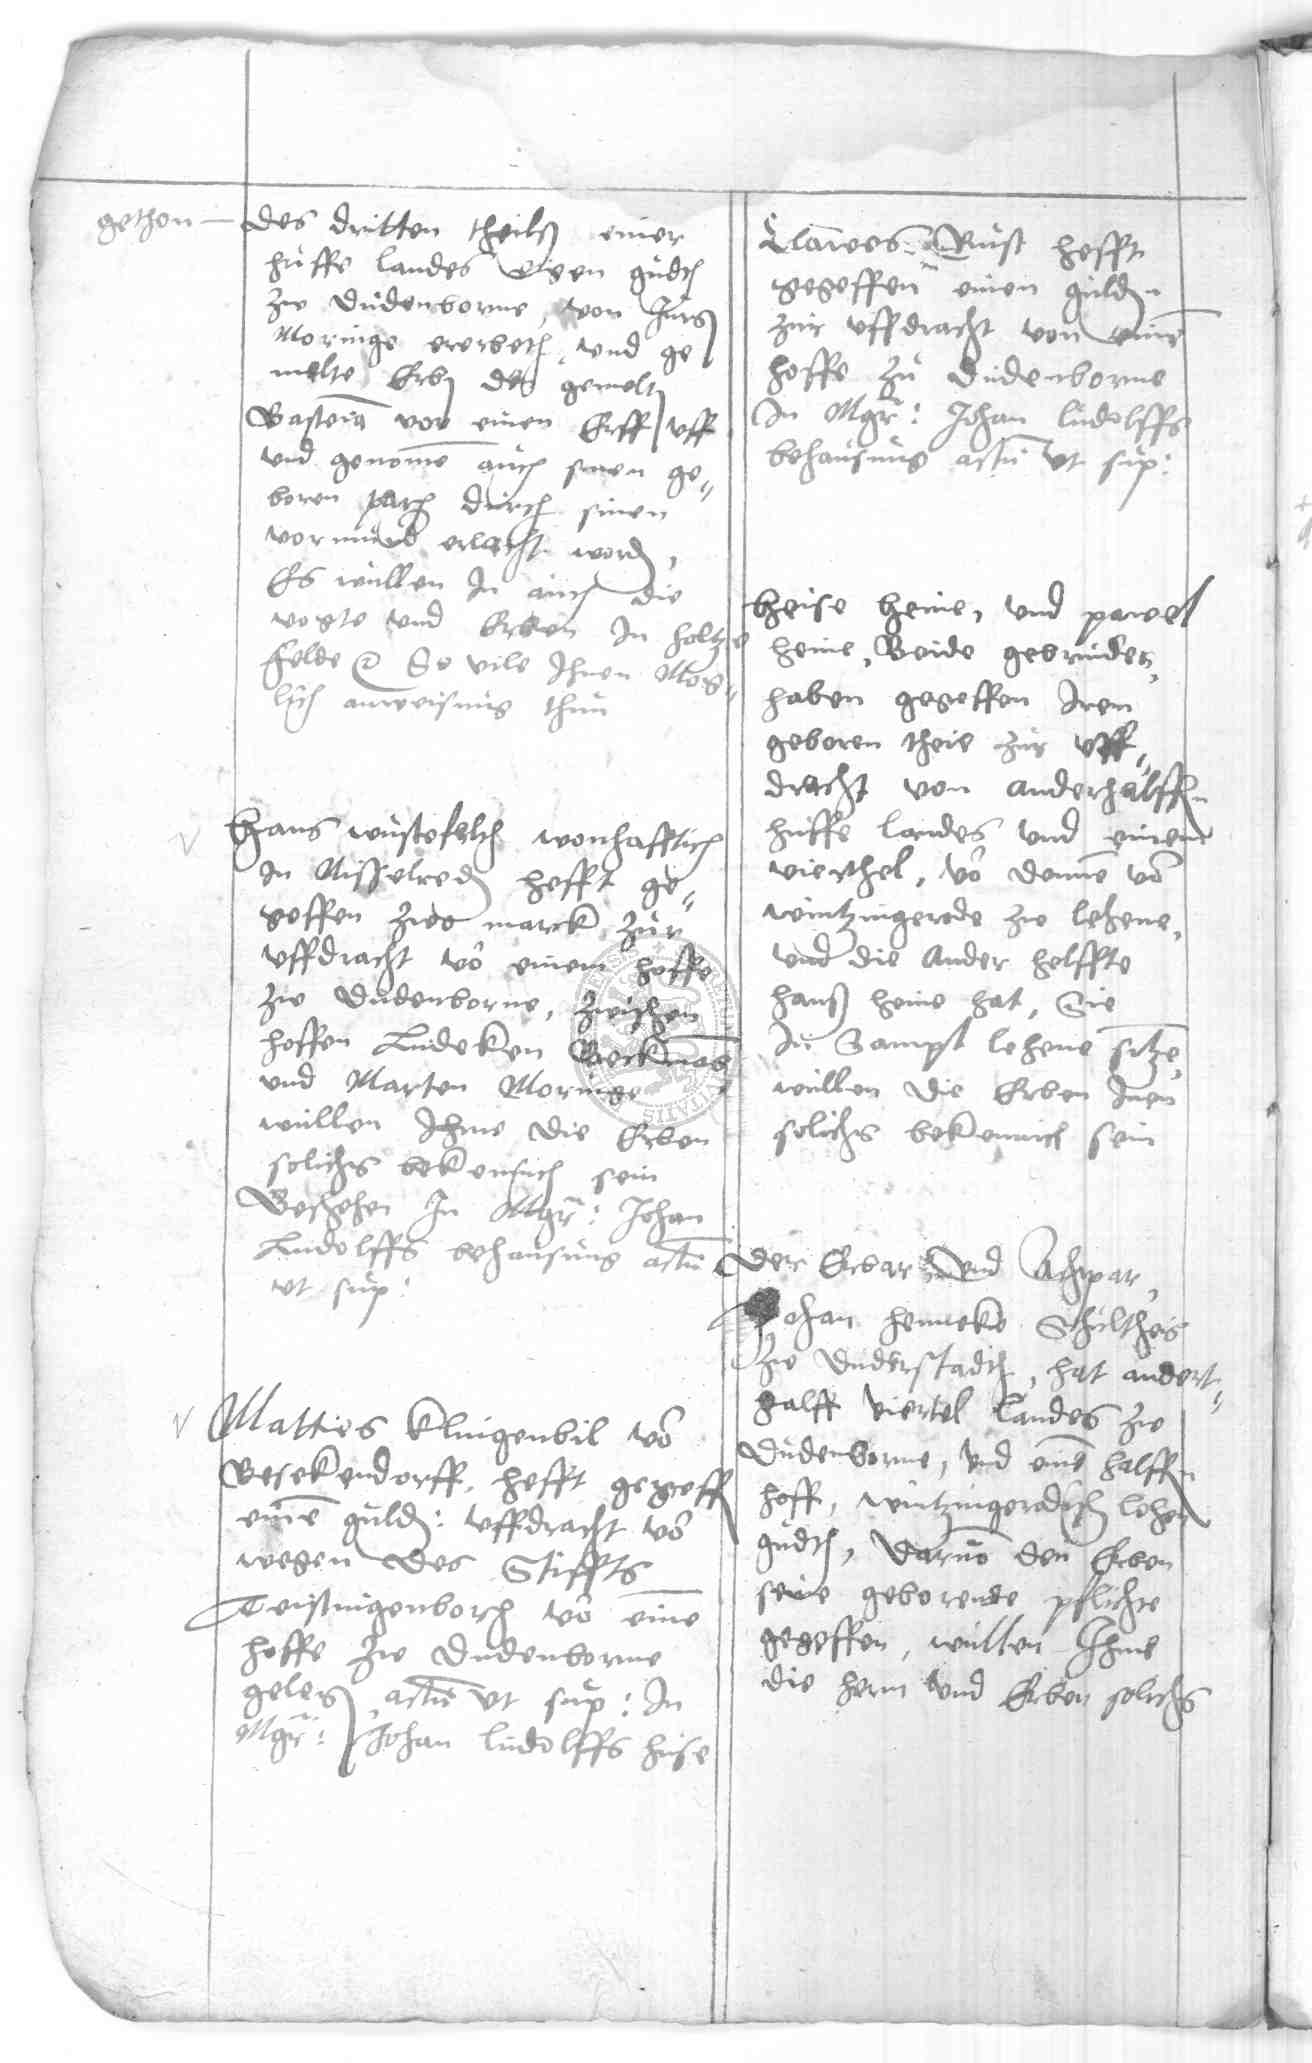 gethon — des dritten theilß einer
huffe landes Eigen gudth
zw Dudenborne, von Jurg
Moringe ererbeth, vnd ge
melte Erb den gemelt
Bastian vor einen Erff vff
vnd genomē auch sinen ge=
boren durch sinen
vormund erlacht word,
Es wullen In auch die
vogte vnd Erben In holtz
felde So vile Ihnen Mog=
lich anweisung thun
Hans wustefeldth wonhafftich
In Nisselred hefft ge=
geffen zwo marck zur
vffdracht vō einem hoffe
zw Dudenborne, zwischen
hoffen Ludeken Beckmās
vnd Marten Moringe
wullen Ihme die Erben
solichs bekentlich sein
Geschehen In Mgr̄: Johan
Ludolffs behausung actū
vt sup:
Matties Klingenbil vō
Besekendorff, hefft gegeff
einē guld: vffdracht vō
wegen des Stiffts
Teistungenborch vō eine
hoffe zw Dudenborne
geleg, actū vt sup: In
Mgr̄: Johan Ludolffs huse
Clawes Rust hefft
gegeffen einen guldn
zur vffdracht von einē
hoffe zu Dudenborne
In Mgr̄: Johan Ludolffs
behausung actū vt sup:
Heise Heine, vnd pawel
Heine, Beide gebruder,
haben gegeffen Iren
geboren theil zur vff=
dracht von anderhalffn
huffe landes vnd einem
vierthel, vō dennē vō
wintzingerode zw lehene,
vnd die Ander helffte
hanß heine hat, Sie
In Sampt lehene sitze,
wullen die Erben Inen
solichs bekennich sein
Der Erbar vnd Achpar,
Johan henneke Schulthes
zw Duderstadth, hat andert=
halff viertel landes zw
Dudenborne, vnd einē halffn
hoff, wintzingerodisch lehen
gudth, Darūō den Erben
seine geborende pflichte
gegeffen, wullen Ihme
die hern vnd Erben solichs